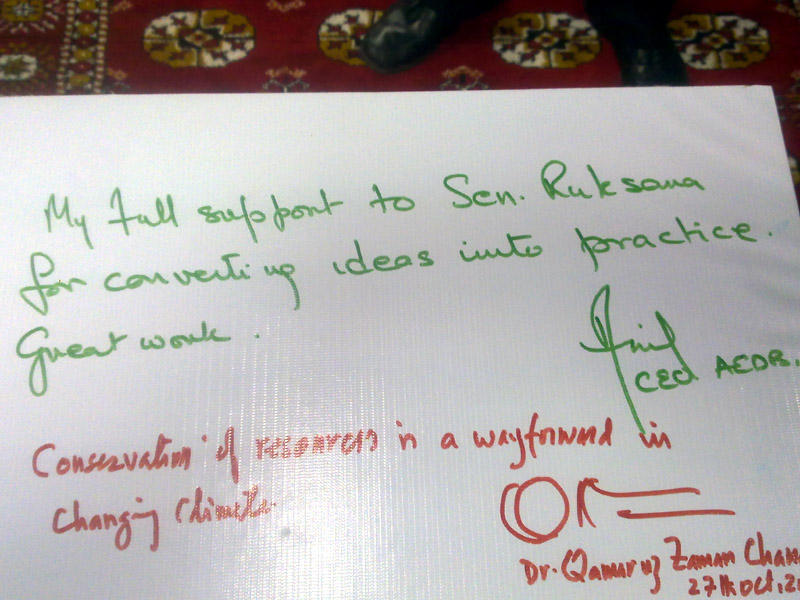 My full support to Sen. Ruksana
for converting ideas into practice.
Great work.
CEO AEDB.
Conservation of resources is a wayforward in
changing climate.
Dr. Qamar uz Zaman Chau
27th Oct, 2